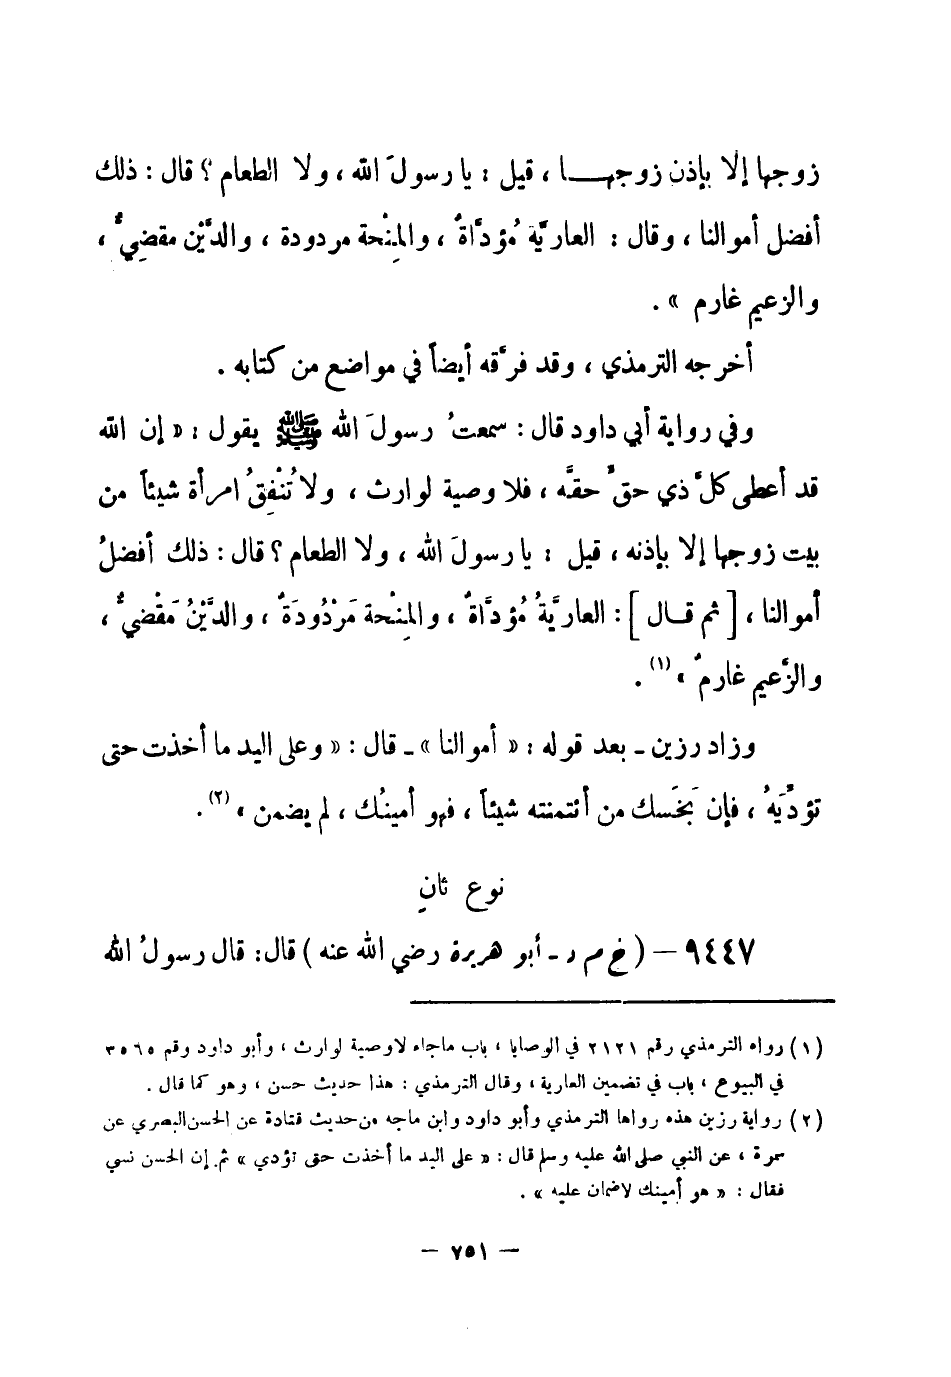 زوجها إلا بإذن زوجهــا ، قيل : يا رسولَ الله ، ولا الطعام ؟ قال : ذلك
أفضل أموالنا ، وقال : العاريَّة مُؤدَّاةٌ ، والمِنْحة مردودة ، والدَّيْن مقضِيٌّ ،
والزعيم غارم » .
أخرجه الترمذي ، وقد فرَّقه أيضاً في مواضع من كتابه .
وفي رواية أبي داود قال : سمعتُ رسولَ الله ﷺ يقول : « إن الله
قد أعطى كلَّ ذي حقٍّ حقَّه ، فلا وصية لوارث ، ولا تُنْفِقُ امرأة شيئاً من
بيت زوجها إلا بإذنه ، قيل : يا رسولَ الله ، ولا الطعام ؟ قال : ذلك أفضلُ
أموالنا ، [ ثم قــال ] : العاريَّةُ مُؤدَّاةٌ ، والمِنْحة مَرْدُودَةٌ ، والدَّيْنُ مَقْضيٌّ ،
والزَّعيم غارمٌ » (١) .
وزاد رزين ـ بعد قوله : « أموالنا » ـ قال : « وعلى اليد ما أخذت حتى
تؤدِّيَهُ ، فإن بَخَسك من أئتمنته شيئاً ، فهو أمينُك ، لم يضمن » (٢) .
نوع ثانٍ
٩٤٤٧ – ( خ م د ـ أبو هريرة رضي الله عنه ) قال : قال رسولُ الله
(١) رواه الترمذي رقم ٢١٢١ في الوصايا ، باب ماجاء لاوصية لوارث ، وأبو داود وقم ٣٥٦٥
في البيوع ، باب في تضمين العارية ، وقال الترمذي : هذا حديث حسن ، وهو كما قال .
(٢) رواية رزين هذه رواها الترمذي وأبو داود وابن ماجه من حديث قتادة عن الحسن البصري عن
سمرة ، عن النبي صلى الله عليه وسلم قال : « على اليد ما أخذت حتى تؤدي » ثم إن الحسن نسي
فقال : « هو أمينك لاضمان عليه » .
– ٧٥١ –